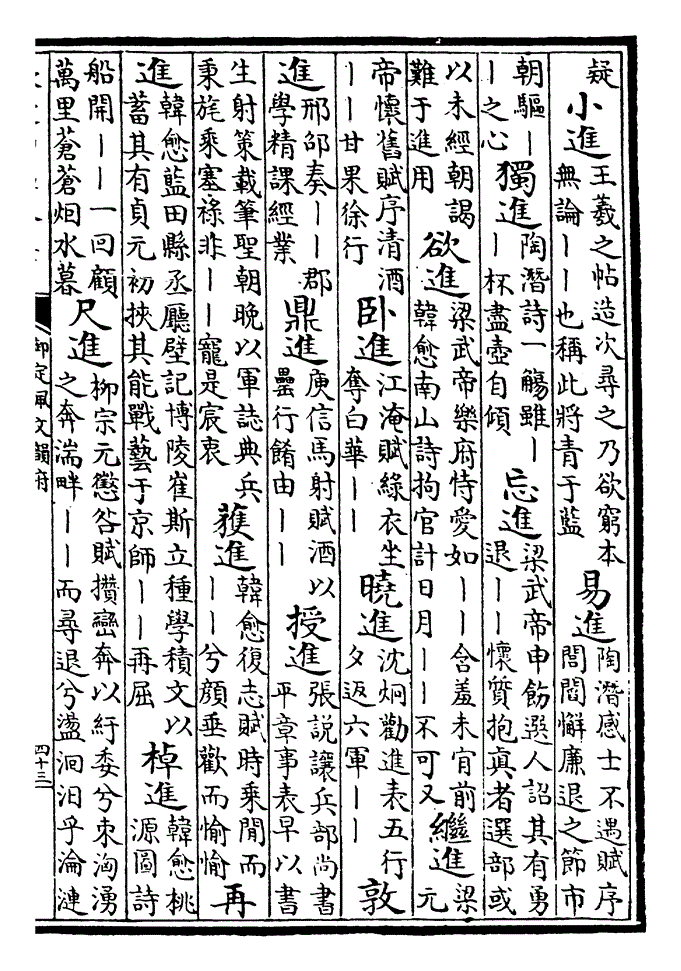 疑小進王羲之帖造次尋之乃欲窮本無論丨丨也稱此將青于藍易進陶潛感士不遇賦序閭閻懈廉退之節市
朝驅丨丨之心獨進陶潛詩一觴雖丨丨杯盡壺自傾忘進梁武帝申飭選人詔其有勇退丨丨懷質抱真者選部或
以未經朝謁難于進用欲進梁武帝樂府恃愛如丨丨含羞未肯前韓愈南山詩拘官計日月丨丨不可又繼進梁元
帝懷舊賦序清酒丨丨甘果徐行卧進江淹賦綠衣坐奪白華丨丨曉進沈炯勸進表五行夕返六軍丨丨敦
進邢邵奏丨丨郡學精課經業鼎進庾信馬射賦酒以罍行餚由丨丨授進張說讓兵部尚書平章事表早以書
生射策載筆聖朝晚以軍誌典兵秉旄乘塞祿非丨丨寵是宸衷獲進韓愈復志賦時乘閒而丨丨兮顏垂歡而愉愉再
進韓愈藍田縣丞廳壁記博陵崔斯立種學積文以蓄其有貞元初挾其能戰藝于京師丨丨再屈棹進韓愈桃源圖詩
船開丨丨一回顧萬里蒼蒼烟水暮尺進柳宗元懲咎賦攢巒奔以紆委兮束洶湧之奔湍畔丨丨而尋退兮盪洄汩乎淪漣
御定佩文韻府
四十三